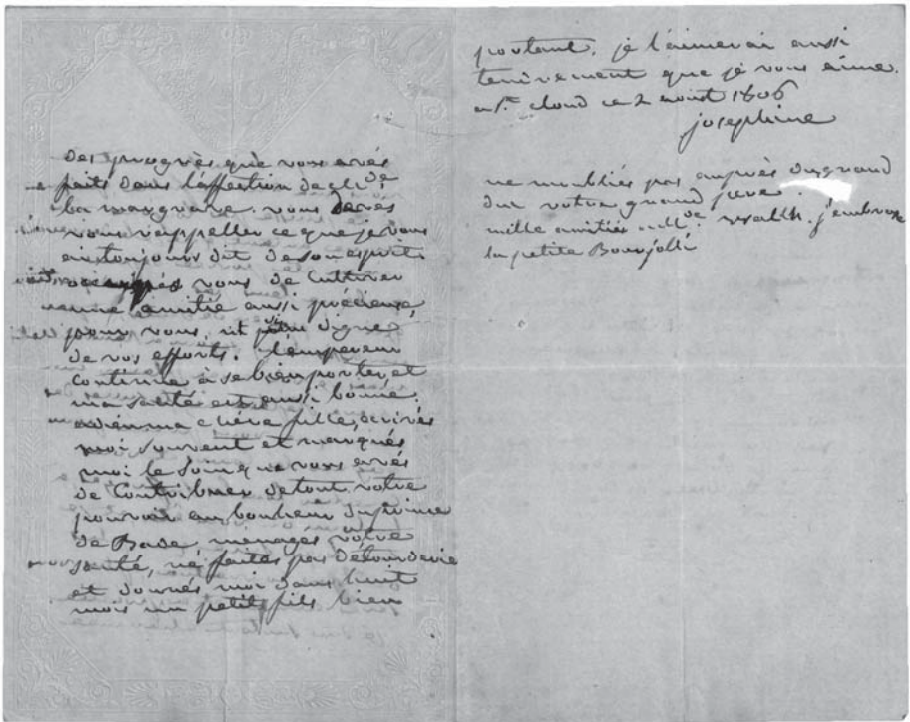 des progrès que vous avés
faits dans l'affection de
la margrave. vous devés
vous rappeller ce que je vous
ai toujours dit de son esprit
vous de cultiver
une amitié aussi precieuse
pour vous, et digne
de vos efforts. l'empereur
continue à se bien porter, et
ma santé est aussi bonne.
adieu ma chère fille, écrivés
moi souvent et marqués
moi le soin que vous avés
de contribuer de tout votre
pouvoir au bonheur du prince
de Bade, menagés votre
santé, ne faites pas d'étourderie
et donnés moi dans huit
mois un petit fils bien
portant. je l'aimerai aussi
tendrement que je vous aime.
a St. cloud ce 2 aoust 1806
josephine
ne m'oubliés pas auprès du grand
duc votre grand pere
mille amitiés a Mde. Walsh. j'embrasse
la petite Bourjolli